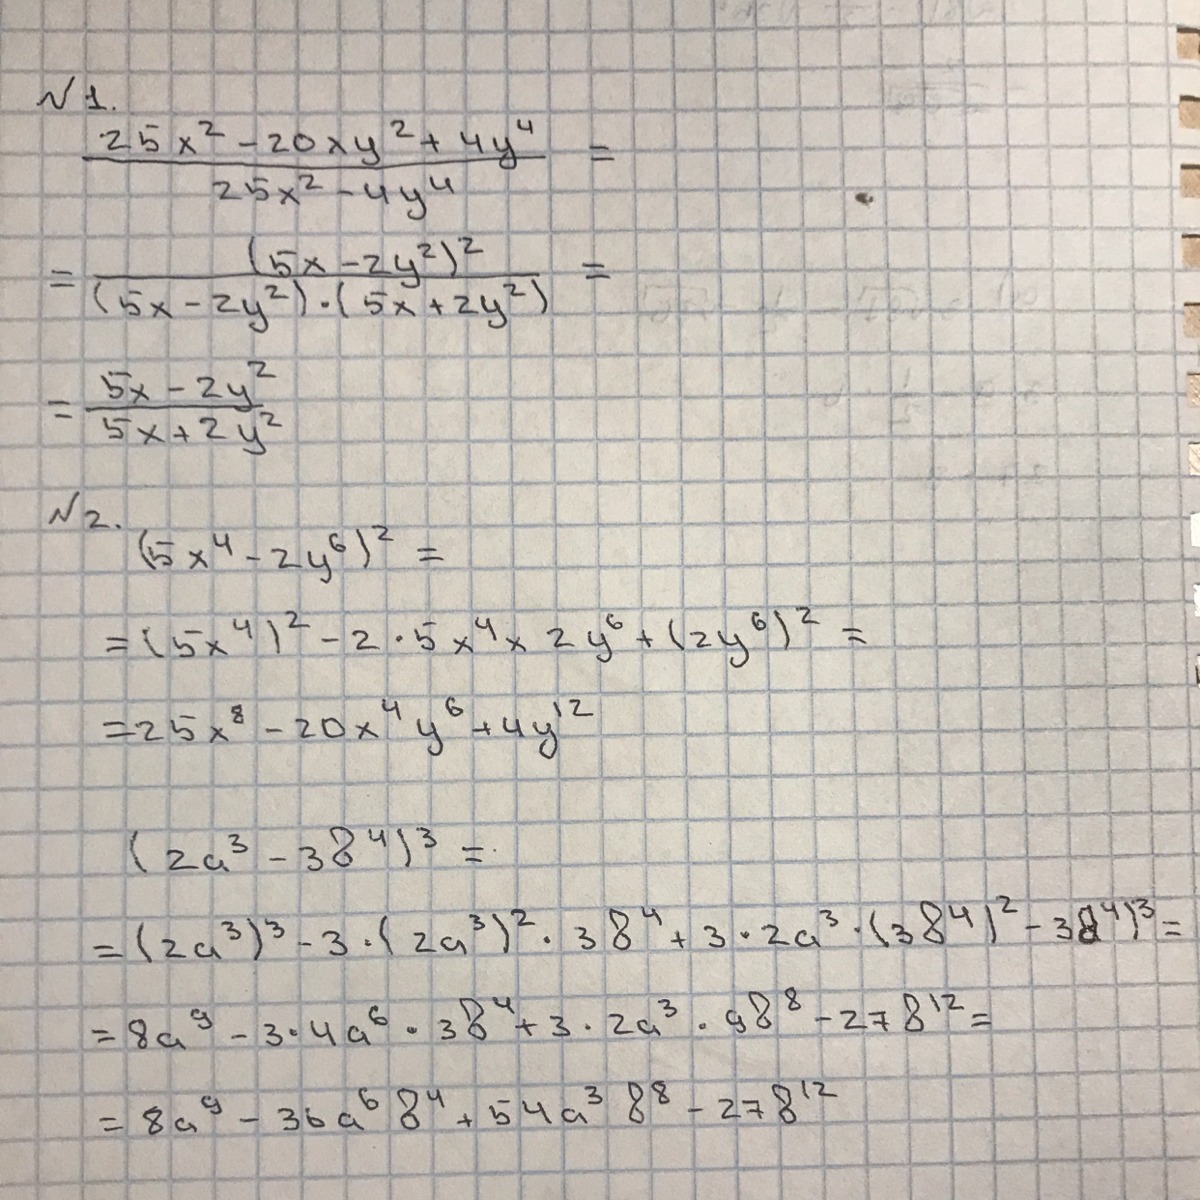 № 1.
25x² - 20xy² + 4y⁴ =
25x² - 4y⁴
= (5x - 2y²)² =
(5x - 2y²) · (5x + 2y²)
= 5x - 2y²
5x + 2y²
№ 2.
(5x⁴ - 2y⁶)² =
= (5x⁴)² - 2 · 5x⁴ x 2y⁶ + (2y⁶)² =
= 25x⁸ - 20x⁴y⁶ + 4y¹²
(2a³ - 3в⁴)³ =
= (2a³)³ - 3 · (2a³)² · 3в⁴ + 3 · 2a³ · (3в⁴)² - 3в⁴)³ =
= 8a⁹ - 3 · 4a⁶ · 3в⁴ + 3 · 2a³ · 9в⁸ - 27в¹² =
= 8a⁹ - 36a⁶в⁴ + 54a³в⁸ - 27в¹²